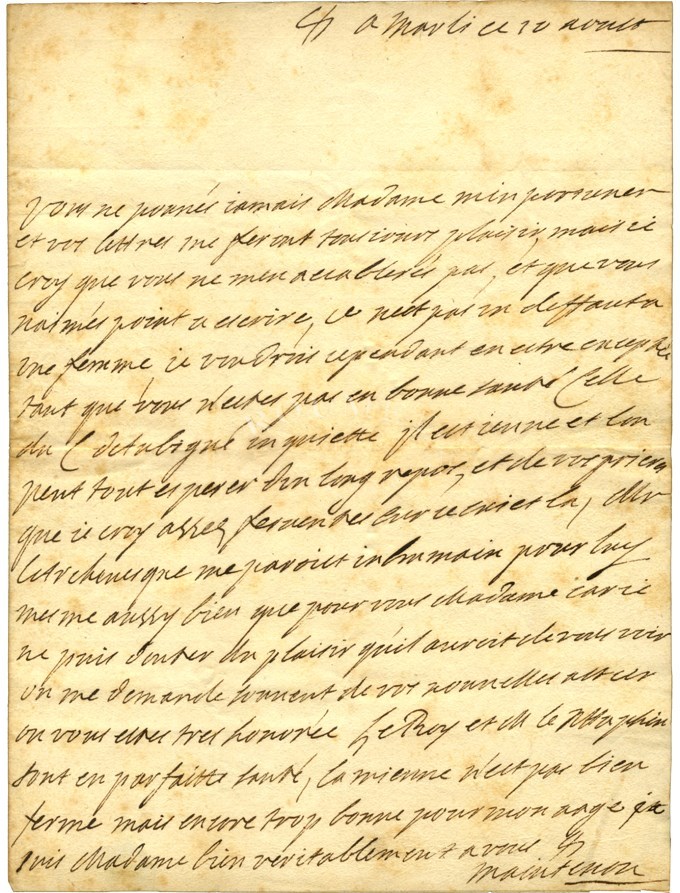 a Marli ce 10 aoust
Vous ne pouvés iamais Madame m'inportuner
et vos lettres me feront tousiours plaisir, mais ie
croy que vous ne men accablerés pas, et que vous
naimés point a escrire, ce nest pas un deffaut a
une femme ie voudrois cependant en estre
tant que vous n'estes pas en bonne santé Celle
du C daubigné inquiette il est ieune et lon
peut tout esperer dun long repos, et de vos prieres
que ie croy assez ferventes sur ce suiet la, Mr
larchevesque me paroist inhumain pour luy
mesme aussy bien que pour vous Madame car ie
ne puis douter du plaisir qu'il auroit de vous voir
on me demande souvent de vos nouvelles
ou vous estes tres honorée Le Roy et M le Dauphin
sont en parfaitte santé, la mienne n'est pas bien
ferme mais encore trop bonne pour mon aage ie
suis Madame bien veritablement a vous
Maintenon